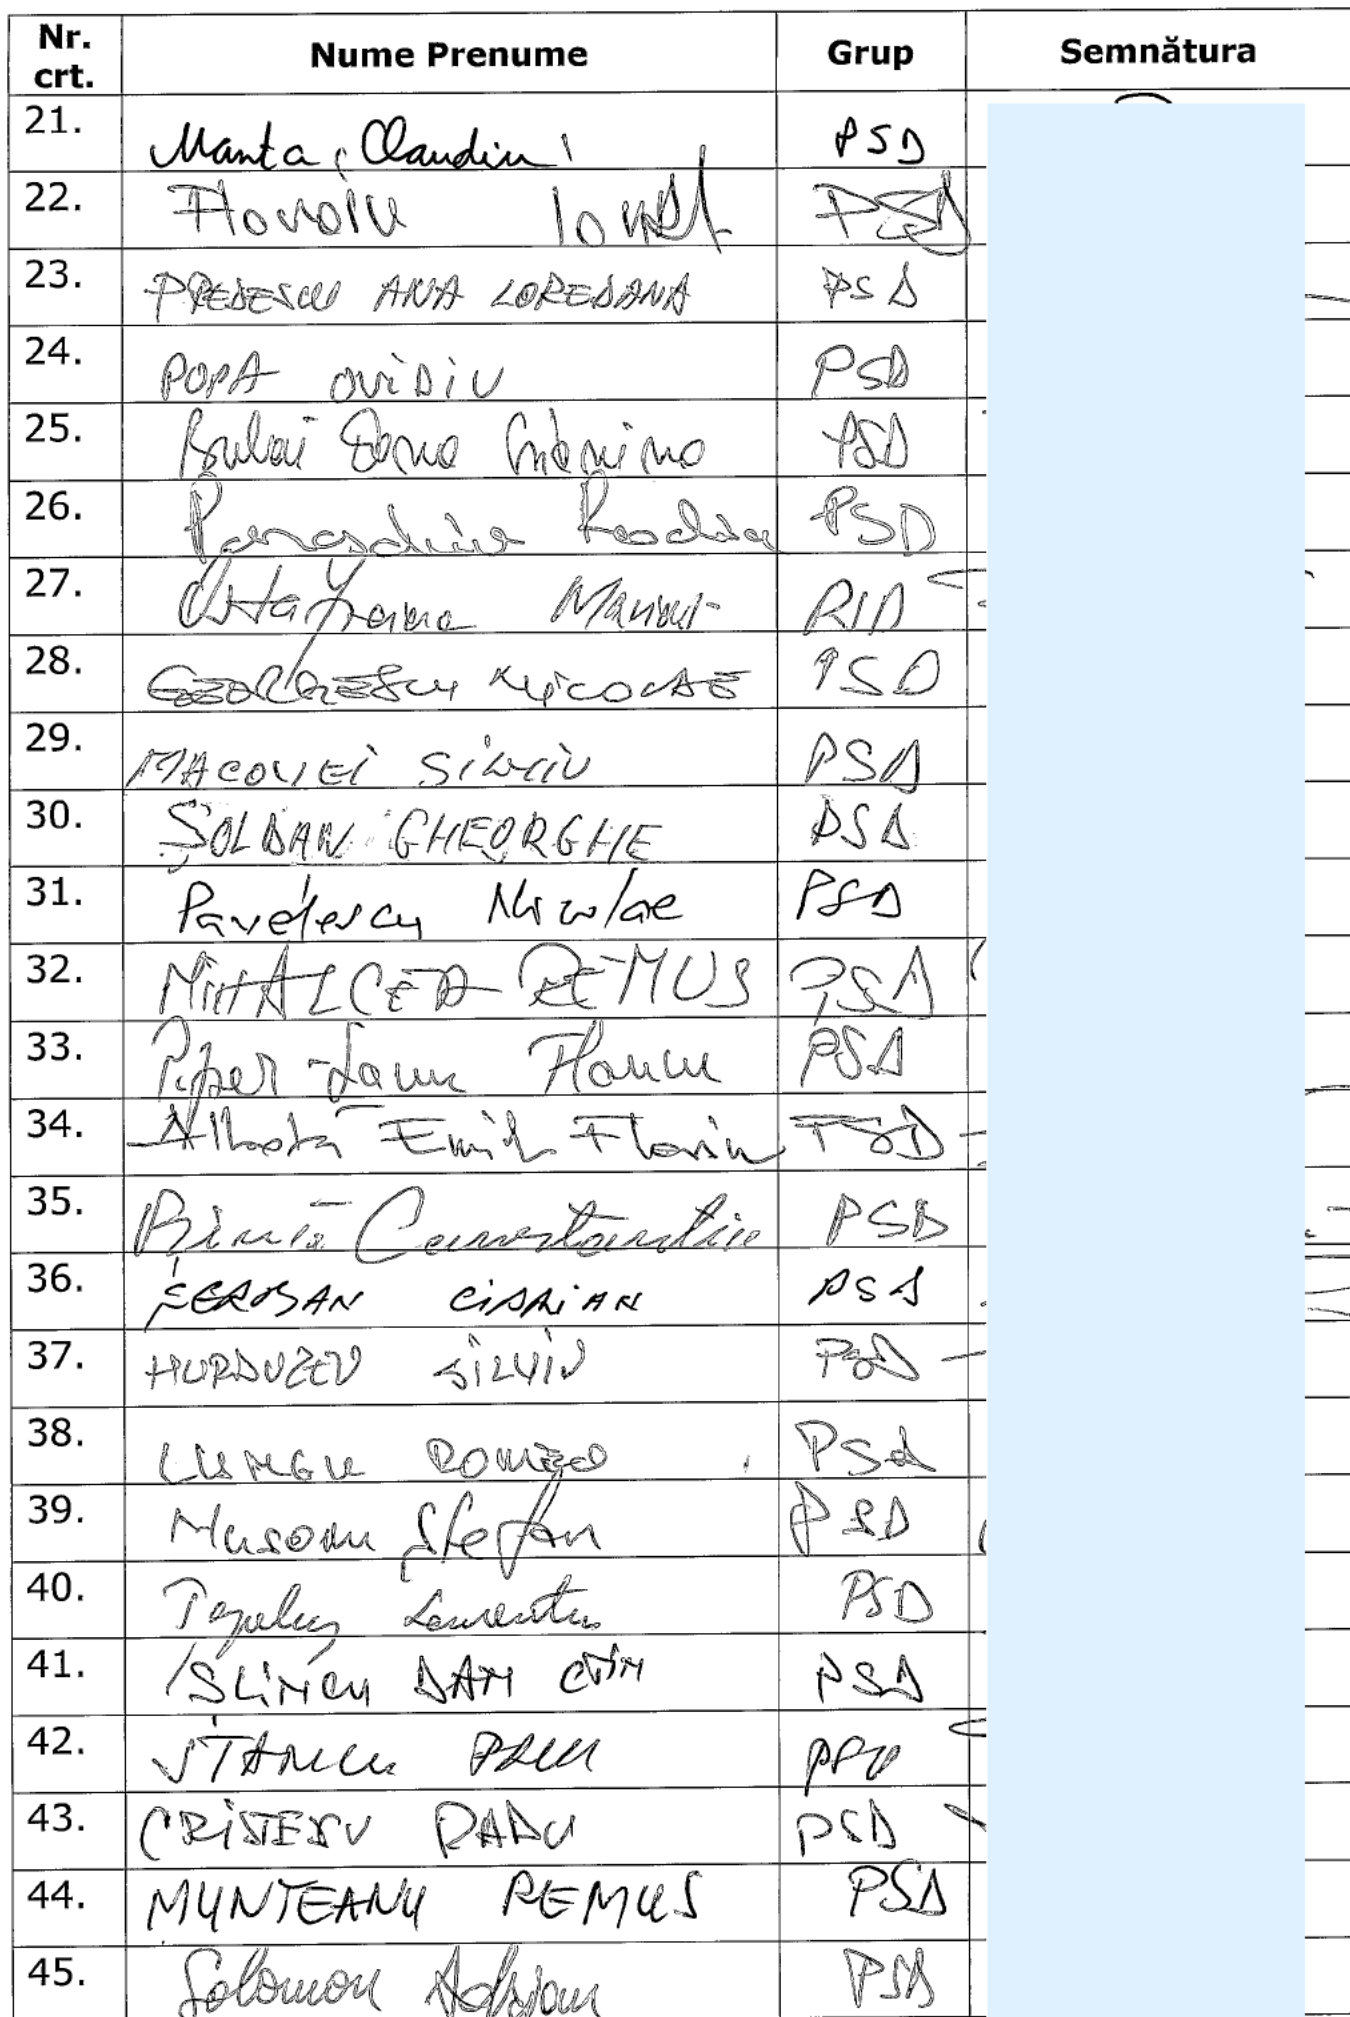 Nr. crt. Nume Prenume Grup Semnătura
21. Manta Claudiu PSD
22. Floroiu Ionel PSD
23. PREDESCU ANA LOREDANA PSD
24. POPA OVIDIU PSD
25. Bulai PSD
26. Rodica PSD
27. Marius
28. GEORGESCU NICOLAE PSD
29. MACOVEI SILVIU PSD
30. ȘOLDAN GHEORGHE PSD
31. Pavelescu Nicolae PSD
32. MIHALCEA REMUS PSD
33. Piper-Savu Florin PSD
34. Albotă Emil Florin PSD
35. Constantin PSD
36. ȘERBAN CIPRIAN PSD
37. HURDUZEU SILVIU PSD
38. LUNGU ROMEO PSD
39. Musoiu Ștefan PSD
40. PSD
41. SLINCU DAN CTIN PSD
42. STANCU PAUL
43. CRISTESCU RADU PSD
44. MUNTEANU REMUS PSD
45. Solomon Adrian PSD